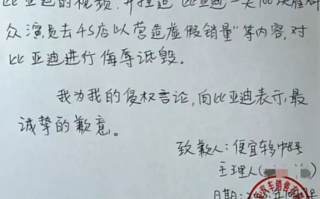 比亚迪的视频,并捏造"比亚迪一天100块雇群
众演员去4S店以营造虚假销量"等内容,对
比亚迪进行侮辱诋毁。
我为我的侵权言论,向比亚迪表示最
诚挚的歉意。
致歉人:便宜车
主理人(
日期: